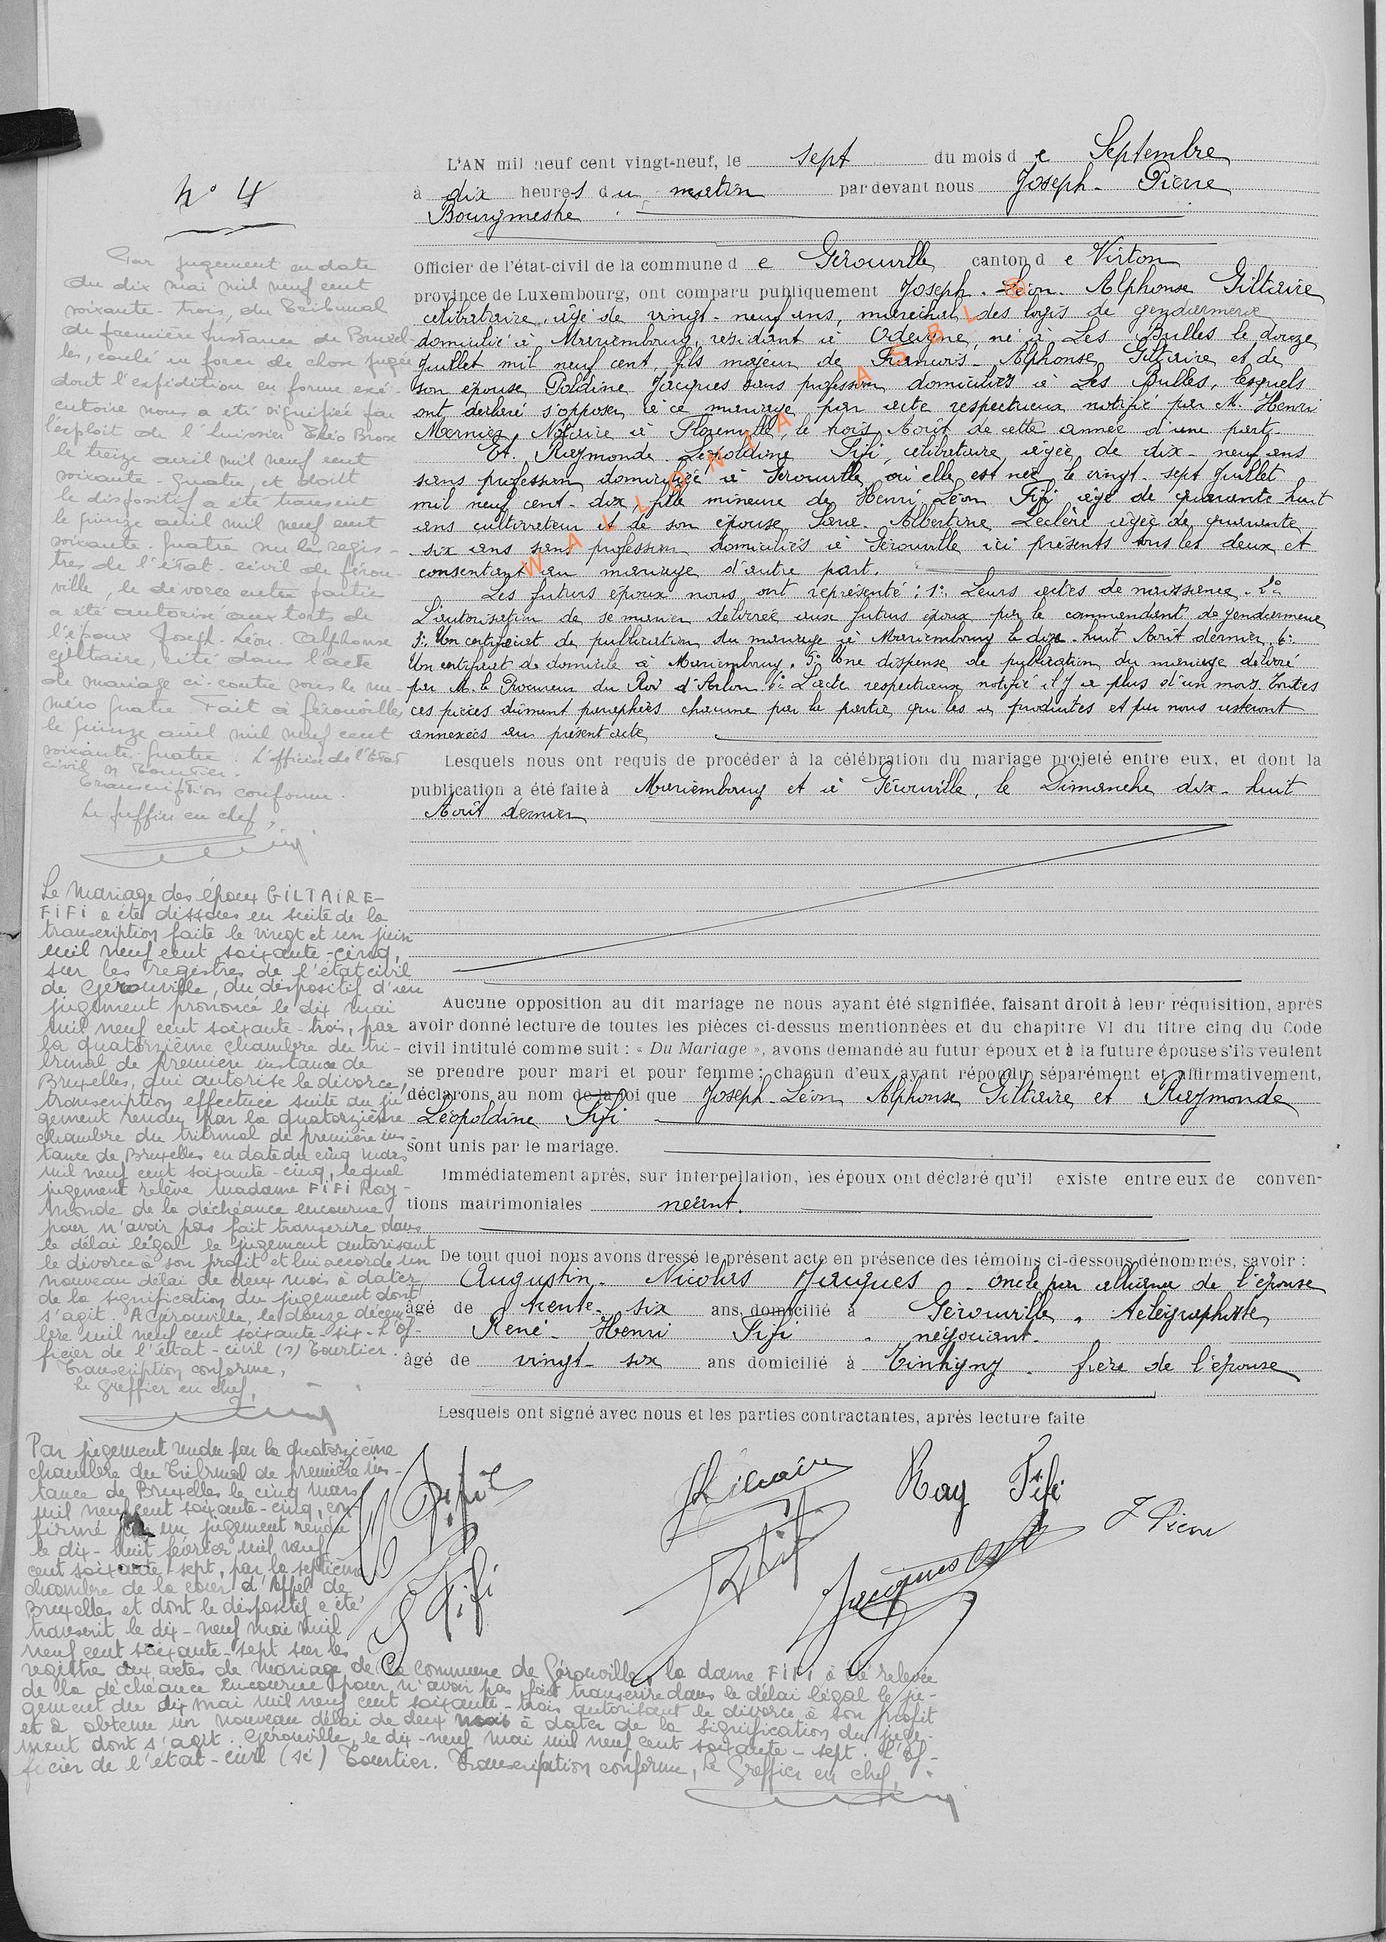 N° 4
L'AN mil neuf cent vingt-neuf, le sept du mois de Septembre
à dix heures du matin par devant nous Joseph Pierre
Bourgmestre
Officier de l'état-civil de la commune de Gérouville canton de Virton
province de Luxembourg, ont comparu publiquement Joseph-Léon-Alphonse Giltaire
célibataire, âgé de vingt-neuf ans, maréchal des logis de gendarmerie
domicilié à Mariembourg, résidant à, né à Les Bulles le douze
Juillet mil neuf cent, fils majeur de François-Alphonse Giltaire et de
son épouse Jacques sans profession domiciliés à Les Bulles, lesquels
ont déclaré s'opposer à ce mariage par acte respectueux notifié par M. Henri
Notaire à Florenville, le trois Août de cette année d'une part
Et Raymonde Léopoldine Fifi, célibataire, âgée de dix-neuf ans
sans profession domiciliée à Gérouville où elle est née le vingt-sept Juillet
mil neuf cent-dix, fille mineure de Henri Léon Fifi âgé de quarante-huit
ans cultivateur et de son épouse Albertine Leclère âgée de quarante
six ans sans profession domiciliés à Gérouville ici présents tous les deux et
consentant au mariage d'autre part.
Les futurs époux nous ont représenté : 1° Leurs actes de naissance. 2°
L'autorisation de se marier délivrée aux futurs époux par le commandant de gendarmerie
3° Un certificat de publication du mariage à Mariembourg le dix-huit Août dernier. 4°
Un certificat de domicile à Mariembourg. 5° Une dispense de publication du mariage délivré
par M. le Procureur du Roi d'Arlon 6° L'acte respectueux notifié il y a plus d'un mois. Toutes
ces pièces dûment paraphées chacune par la partie qui les a produites et par nous resteront
annexées au présent acte
Lesquels nous ont requis de procéder à la célébration du mariage projeté entre eux, et dont la
publication a été faite à Mariembourg et à Gérouville, le Dimanche dix-huit
Août dernier
Aucune opposition au dit mariage ne nous ayant été signifiée, faisant droit à leur réquisition, après
avoir donné lecture de toutes les pièces ci-dessus mentionnées et du chapitre VI du titre cinq du Code
civil intitulé comme suit : « Du Mariage », avons demandé au futur époux et à la future épouse s'ils veulent
se prendre pour mari et pour femme : chacun d'eux ayant répondu séparément et affirmativement,
déclarons au nom de la loi que Joseph-Léon Alphonse Giltaire et Raymonde
Léopoldine Fifi
sont unis par le mariage.
Immédiatement après, sur interpellation, les époux ont déclaré qu'il existe entre eux de conven-
tions matrimoniales néant.
De tout quoi nous avons dressé le présent acte en présence des témoins ci-dessous dénommés, savoir :
Augustin-Nicolas Jacques oncle par alliance de l'épouse
âgé de trente-six ans, domicilié à Gérouville, télégraphiste
René-Henri Fifi négociant
âgé de vingt-six ans domicilié à Tintigny frère de l'épouse
Lesquels ont signé avec nous et les parties contractantes, après lecture faite
H Fifi
Giltaire
Ray Fifi
J Pierre
R Fifi
Jacques
Fifi
Par jugement en date
du dix mai mil neuf cent
soixante-trois du Tribunal
de première instance de Bruxel
les, coulé en force de chose jugée
dont l'expédition en forme exé-
cutoire nous a été signifiée par
l'exploit de l'huissier Théo Brose
le treize avril mil neuf cent
soixante quatre, et dont
le dispositif a été transcrit
le quinze avril mil neuf cent
soixante quatre sur les regis-
tres de l'état-civil de Gérou-
ville, le divorce entre parties
a été autorisé aux torts de
l'époux Joseph-Léon-Alphonse
Giltaire, cité dans l'acte
de mariage ci-contre sous le nu-
méro quatre. Fait à Gérouville
le quinze avril mil neuf cent
soixante-quatre. L'officier de l'Etat
civil, (s) Tourtier.
Transcription conforme.
Le greffier en chef,
Le Mariage des époux GILTAIRE-
FIFI a été dissous en suite de la
transcription faite le vingt et un juin
mil neuf cent soixante-cinq,
sur les registres de l'état civil
de Gérouville, du dispositif d'un
jugement prononcé le dix mai
mil neuf cent soixante-trois, par
la quatorzième chambre du tri-
bunal de première instance de
Bruxelles, qui autorise le divorce,
transcription effectuée suite du ju
gement rendu par la quatorzième
chambre du tribunal de première ins
tance de Bruxelles en date du cinq mars
mil neuf cent soixante-cinq, lequel
jugement relève madame FIFI Ray-
monde de la déchéance encourue
pour n'avoir pas fait transcrire dans
le délai légal le jugement autorisant
le divorce à son profit et lui accorde un
nouveau délai de deux mois à dater
de la signification du jugement dont
s'agit. A Gérouville, le douze décem
bre mil neuf cent soixante-six. L'of-
ficier de l'état-civil (s) Tourtier.
Transcription conforme,
Le Greffier en chef,
Par jugement rendu par la quatorzième
chambre du Tribunal de première ins-
tance de Bruxelles le cinq mars
mil neuf cent soixante-cinq, con
firmé par un jugement rendu
le dix-huit février mil neuf
cent soixante-sept, par la septième
chambre de la cour d'Appel de
Bruxelles et dont le dispositif a été
transcrit le dix-neuf mai mil
neuf cent soixante-sept sur les
registres aux actes de mariage de la commune de Gérouville, la dame FIFI a été relevée
de la déchéance encourue pour n'avoir pas fait transcrire dans le délai légal le ju-
gement du dix mai mil neuf cent soixante-trois autorisant le divorce à son profit
et a obtenu un nouveau délai de deux mois à dater de la signification du juge-
ment dont s'agit. Gérouville, le dix-neuf mai mil neuf cent soixante-sept. L'of-
ficier de l'état-civil (sé) Tourtier. Transcription conforme, Le Greffier en chef,
WALLONIA ASBL ©